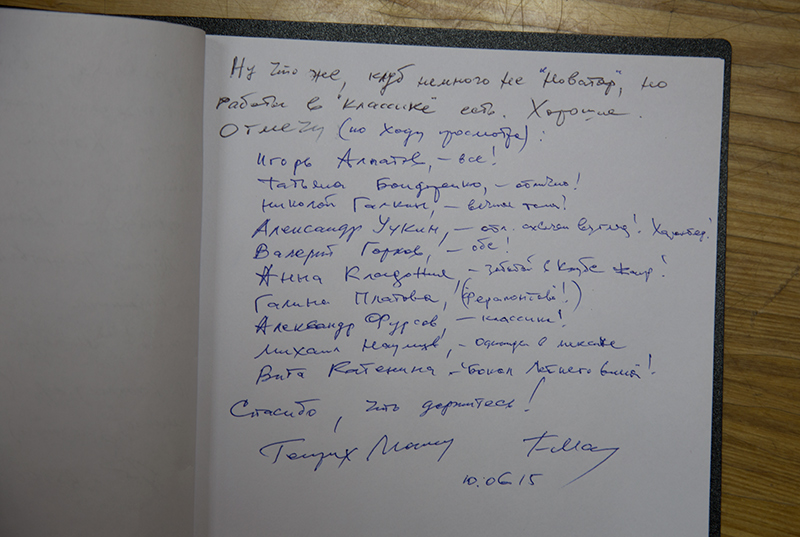 Ну что же, клуб немного не "Новатор", но
работы в "классике" есть. Хорошие.
Отмечу (по ходу просмотра):
Игорь Алпатов, – все!
Татьяна Бондаренко, – отлично!
Николай Галкин, – вечные темы!
Александр Учкин, – отл. взгляд!
Валерий Горков, – обе!
Анна – в Кубе
Галина Платова, ("Ферапонтово"!)
Александр Фурсов, – классика!
Михаил Наумцев, – в
Вита Катенина – "Бокал Летнего вина"!
Спасибо, что держитесь!
10.06.15